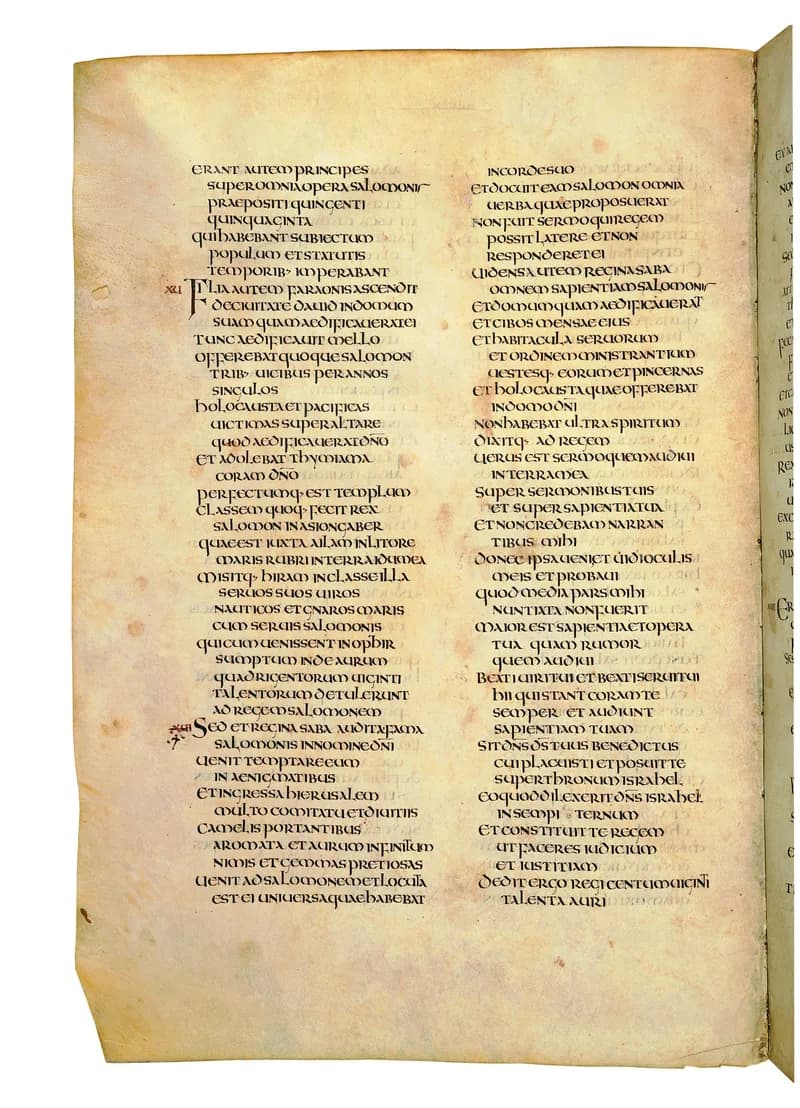 ERANT AUTEM PRINCIPES
SUPER OMNIA OPERA SALOMONIS
PRAEPOSITI QUINGENTI
QUINQUAGINTA
QUI HABEBANT SUBIECTUM
POPULUM ET STATUTIS
TEMPORIB; IMPERABANT
XVI FILIA AUTEM FARAONIS ASCENDIT
DE CIUITATE DAUID IN DOMUM
SUAM QUAM AEDIFICAUERAT EI
TUNC AEDIFICAUIT MELLO
OFFEREBAT QUOQUE SALOMON
TRIB; UICIBUS PER ANNOS
SINGULOS
HOLOCAUSTA ET PACIFICAS
UICTIMAS SUPER ALTARE
QUOD AEDIFICAUERAT DÑO
ET ADOLEBAT THYMIAMA
CORAM DÑO
PERFECTUMQ; EST TEMPLUM
CLASSEM QUOQ; FECIT REX
SALOMON IN ASIONGABER
QUAE EST IUXTA AILAM IN LITORE
MARIS RUBRI IN TERRA IDUMEA
MISITQ; HIRAM IN CLASSE ILLA
SERUOS SUOS UIROS
NAUTICOS ET GNAROS MARIS
CUM SERUIS SALOMONIS
QUI CUM UENISSENT IN OPHIR
SUMPTUM INDE AURUM
QUADRIGENTORUM UIGINTI
TALENTORUM DETULERUNT
AD REGEM SALOMONEM
SED ET REGINA SABA AUDITA FAMA
SALOMONIS IN NOMINE DÑI
UENIT TEMPTARE EUM
IN AENIGMATIBUS
ET INGRESSA HIERUSALEM
MULTO COMITATU ET DIUITIIS
CAMELIS PORTANTIBUS
AROMATA ET AURUM INFINITUM
NIMIS ET GEMMAS PRETIOSAS
UENIT AD SALOMONEM ET LOCUTA
EST EI UNIUERSA QUAE HABEBAT
IN CORDE SUO
ET DOCUIT EAM SALOMON OMNIA
UERBA QUAE PROPOSUERAT
NON FUIT SERMO QUI REGEM
POSSIT LATERE ET NON
RESPONDERET EI
UIDENS AUTEM REGINA SABA
OMNEM SAPIENTIAM SALOMONIS
ET DOMUM QUAM AEDIFICAUERAT
ET CIBOS MENSAE EIUS
ET HABITACULA SERUORUM
ET ORDINEM MINISTRANTIUM
UESTESQ; EORUM ET PINCERNAS
ET HOLOCAUSTA QUAE OFFEREBAT
IN DOMO DÑI
NON HABEBAT ULTRA SPIRITUM
DIXITQ; AD REGEM
UERUS EST SERMO QUEM AUDIUI
IN TERRA MEA
SUPER SERMONIBUS TUIS
ET SUPER SAPIENTIA TUA
ET NON CREDEBAM NARRAN
TIBUS MIHI
DONEC IPSA UENI ET UIDI OCULIS
MEIS ET PROBAUI
QUOD MEDIA PARS MIHI
NUNTIATA NON FUERIT
MAIOR EST SAPIENTIA ET OPERA
TUA QUAM RUMOR
QUEM AUDIUI
BEATI UIRI TUI ET BEATI SERUI TUI
HII QUI STANT CORAM TE
SEMPER ET AUDIUNT
SAPIENTIAM TUAM
SIT DÑS DS̄ TUUS BENEDICTUS
CUI PLACUISTI ET POSUIT TE
SUPER THRONUM ISRAHEL
EO QUOD DILEXERIT DÑS ISRAHEL
IN SEMPITERNUM
ET CONSTITUIT TE REGEM
UT FACERES IUDICIUM
ET IUSTITIAM
DEDIT ERGO REGI CENTUM UIGINTI
TALENTA AURI